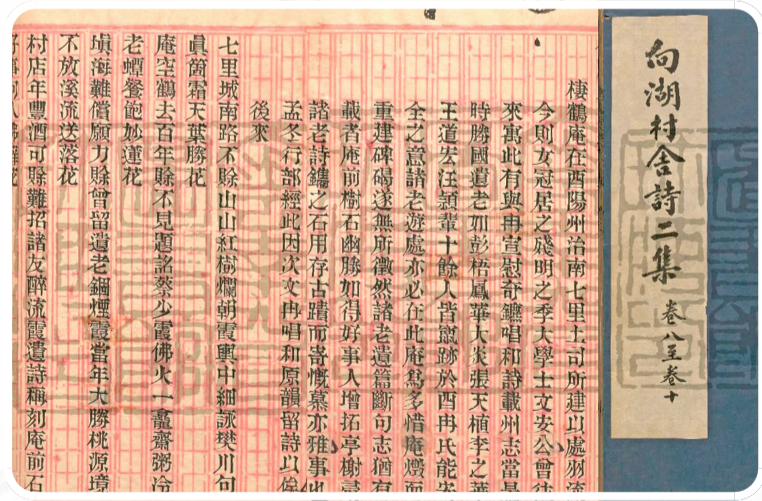 向湖村舍詩二集
卷八至卷十
棲鶴庵在酉陽州治南七里土司所建以處羽流
今則女冠居之殘明之季大學士文安公曾往
來寓此有與冉宣慰奇鑣唱和詩載州志當是
時勝國遺老如彭梧鳳華大炎張天植李之華
王道宏汪穎輩十餘人皆竄跡於酉冉氏能安
全之意諸老遊處亦必在此庵爲多惜庵燬而
重建碑碣遂無所徵然諸老遺篇斷句志猶有
載者庵前樹石幽勝如得好事人增拓亭榭尋
諸老詩鐫之石用存古蹟而寄慨慕亦雅事也
孟冬行部經此因次文冉唱和原韻留詩以俟
後來
七里城南路不賖山山紅樹爛朝霞輿中細詠樊川句
眞箇霜天葉勝花
庵空鶴去百年賖不見題詺蔡少霞佛火一龕齋粥冷
老蟫餐飽妙蓮花
塡海難償願力賖曾留遺老錮煙霞當年大勝桃源境
不放溪流送落花
村店年豐酒可賖難招諸友醉流霞遺詩稱刻庵前石